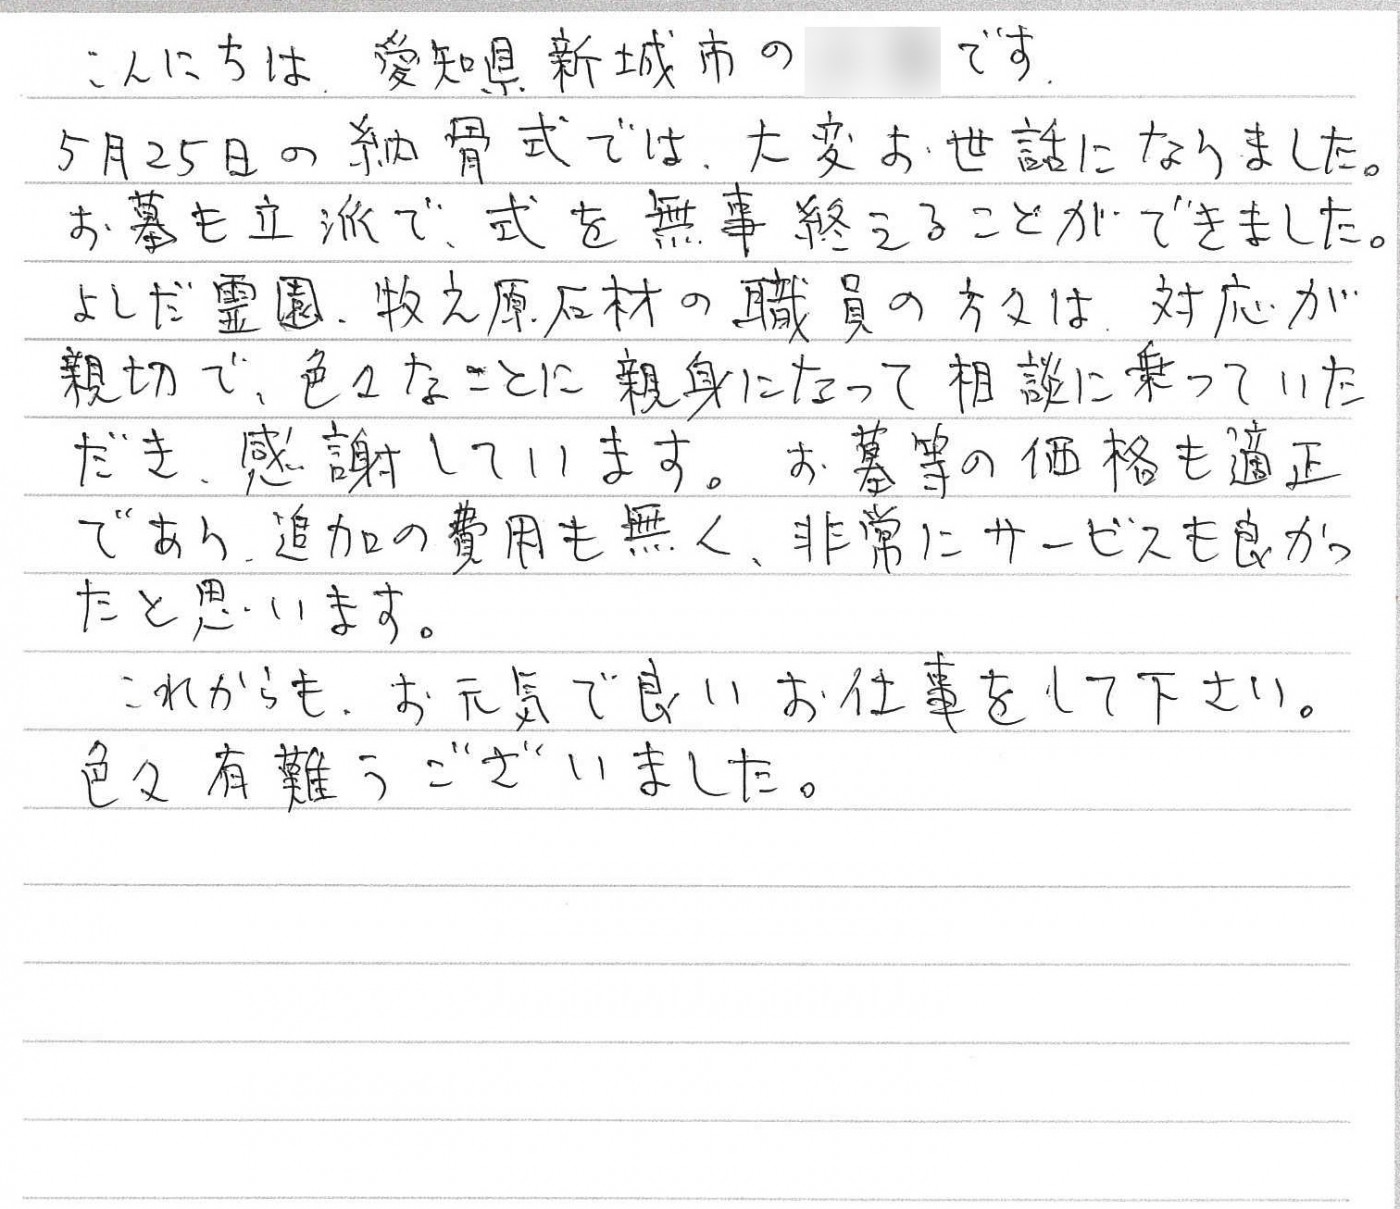 こんにちは、愛知県新城市の です。
5月25日の納骨式では、大変お世話になりました。
お墓も立派で、式を無事終えることができました。
よしだ霊園、牧之原石材の職員の方々は、対応が
親切で、色々なことに親身になって相談に乗っていた
だき、感謝しています。お墓等の価格も適正
であり、追加の費用も無く、非常にサービスも良かっ
たと思います。
これからも、お元気で良いお仕事をして下さい。
色々有難うございました。